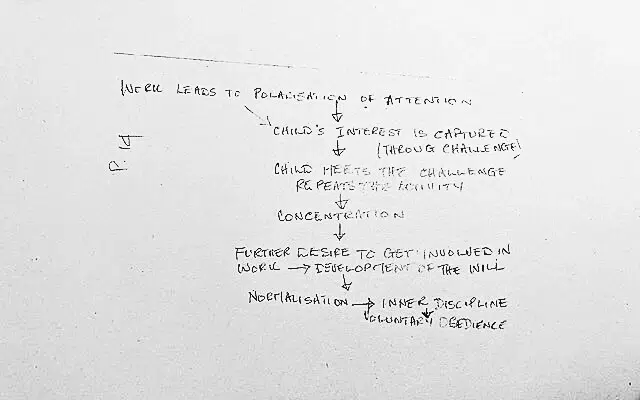 WORK LEADS TO POLARISATION OF ATTENTION
CHILD'S INTEREST IS CAPTURED
(THROUG CHALLENGE)
CHILD MEETS THE CHALLENGE
REPEATS THE ACTIVITY
CONCENTRATION
FURTHER DESIRE TO GET INVOLVED IN
WORK → DEVELOPMENT OF THE WILL
NORMALISATION → INNER DISCIPLINE
VOLUNTARY OBEDIENCE